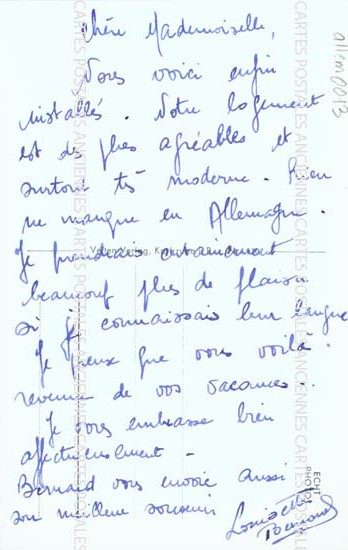 Chère Mademoiselle,
Nous voici enfin
installés. Notre logement
est des plus agréables et
surtout très moderne. Rien
ne manque en Allemagne.
Je prendrais certainement
beaucoup plus de plaisir
si je connaissais leur langue
Je pense que vous voilà
revenue de vos vacances..
Je vous embrasse bien
affectueusement -
Bernard vous envoie aussi
son meilleur souvenir
Bernard
allem0013
ECHT
PHOTO
CARTES POSTALES ANCIENNES